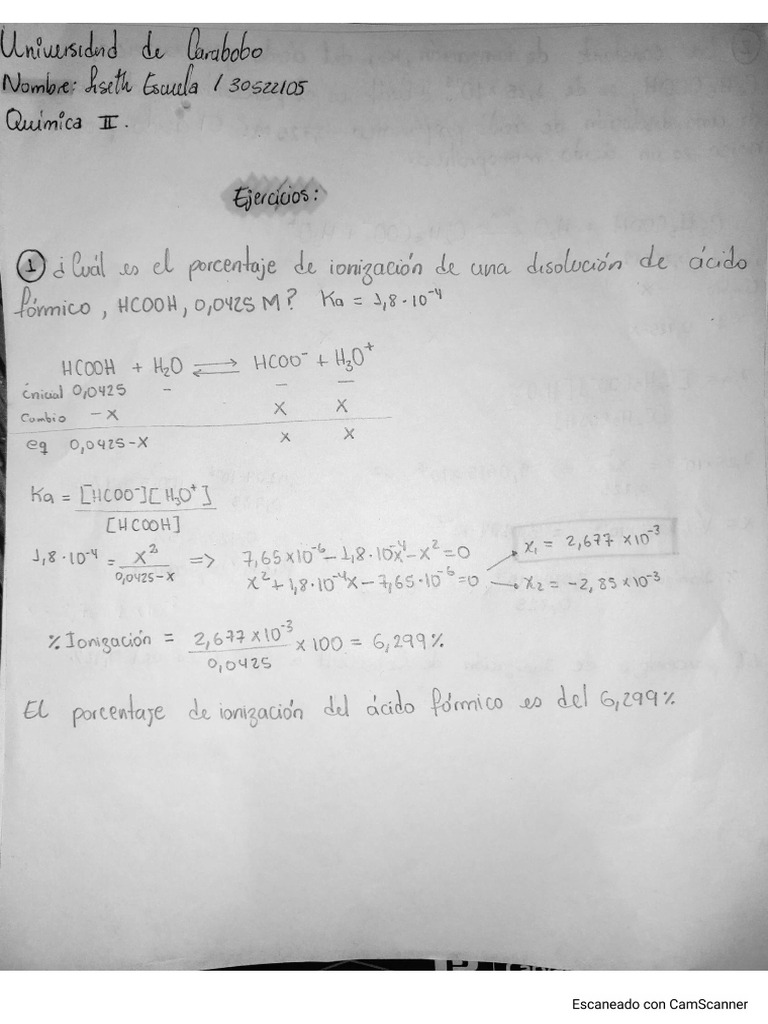 Universidad de Carabobo
Nombre: Liseth Escuela / 30522105
Química II.
Ejercicios:
① ¿Cuál es el porcentaje de ionización de una disolución de ácido
fórmico, HCOOH, 0,0425 M? Ka = 1,8·10⁻⁴
HCOOH + H₂O ⇌ HCOO⁻ + H₃O⁺
inicial 0,0425 – – –
Cambio -x x x
eq 0,0425-x x x
Ka = [HCOO⁻][H₃O⁺]
[HCOOH]
1,8·10⁻⁴ = x²/0,0425-x => 7,65x10⁻⁶ - 1,8·10⁻⁴x - x² = 0
x² + 1,8·10⁻⁴x - 7,65·10⁻⁶ = 0
x₁ = 2,677 x10⁻³
x₂ = -2,85x10⁻³
% Ionización = 2,677x10⁻³/0,0425 x 100 = 6,299%
El porcentaje de ionización del ácido fórmico es del 6,299%
Escaneado con CamScanner